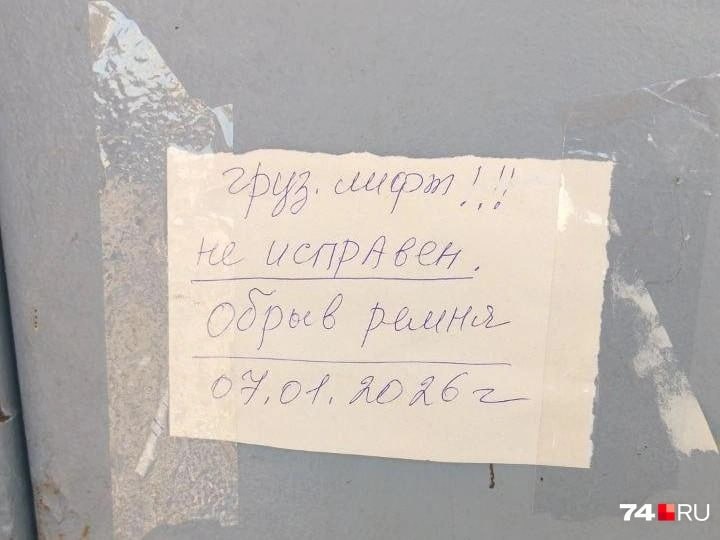 груз. лифт!!!
не исправен.
Обрыв ремня
07.01.2026 г
74.RU